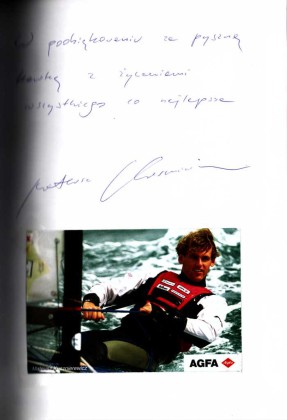 W podziękowaniu za pyszną
kawkę z życzeniami
wszystkiego co najlepsze
Mateusz
AGFA